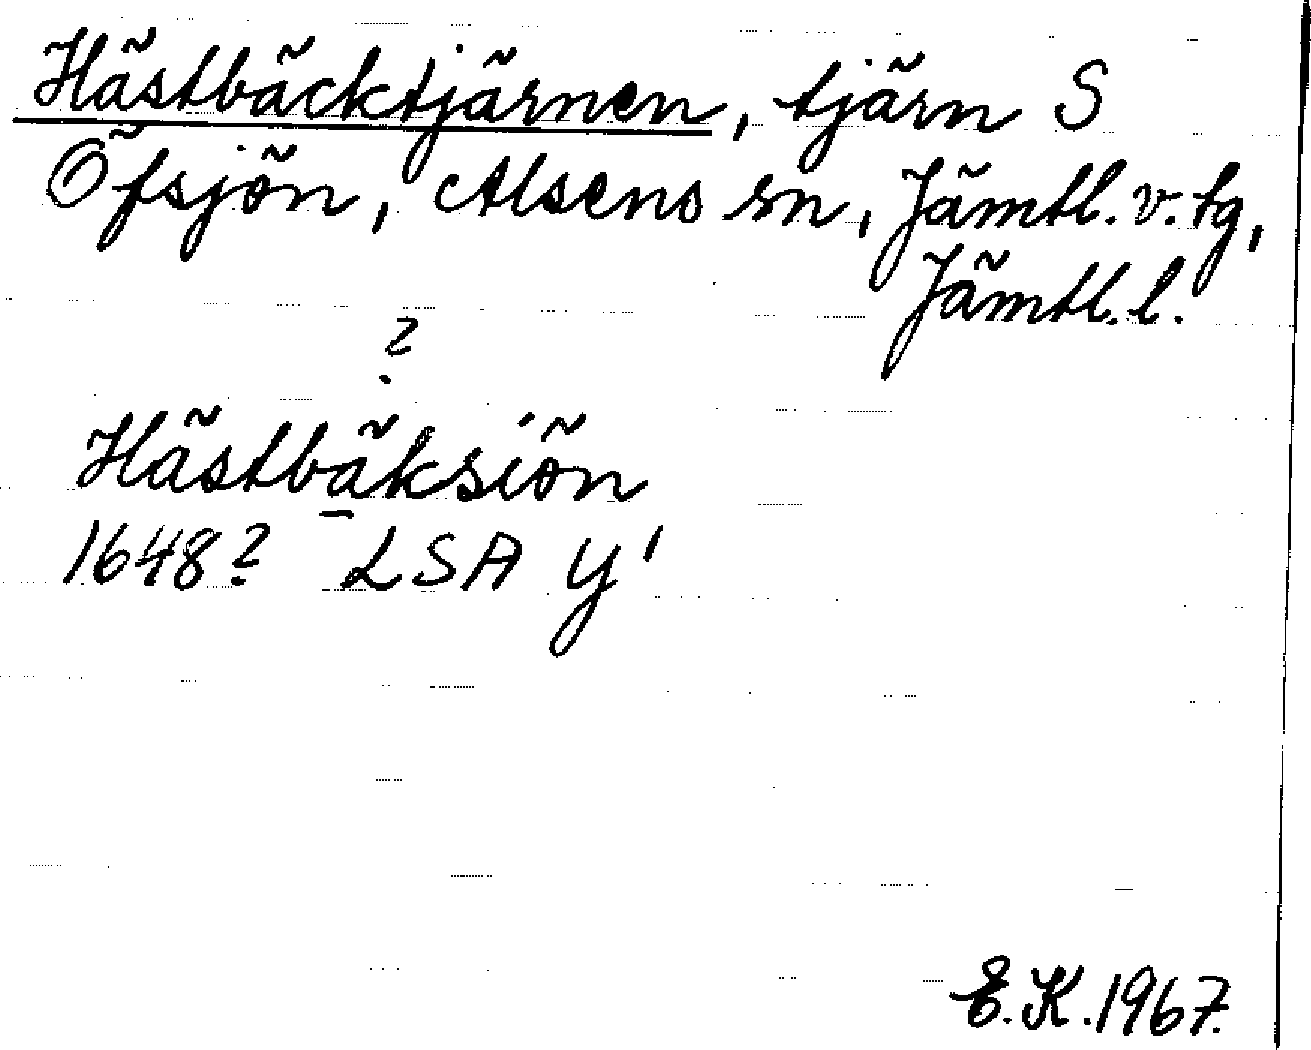 Hästbäcktjärnen, tjärn S
Öfsjön, Alsens sn, Jämtl. v. tg,
Jämtl. l.
?
Hästbäksiön
1648? LSA Y'
E. K. 1967.